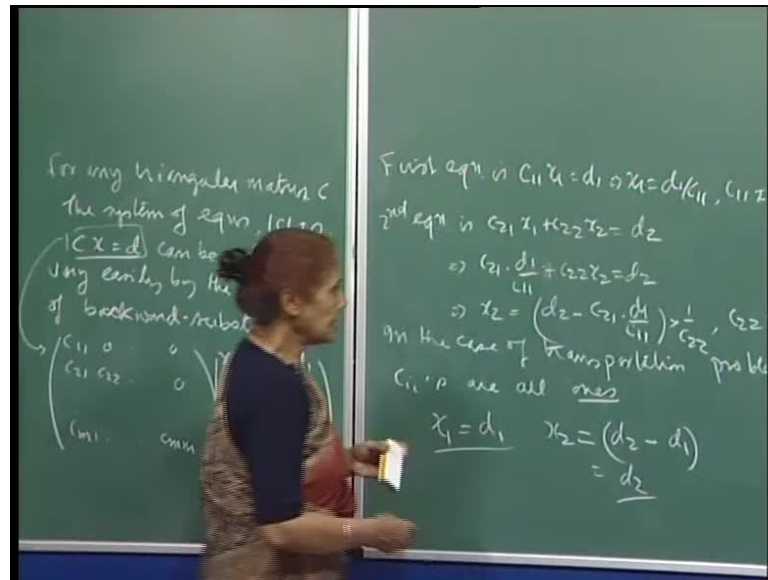 For any triangular matrix C
the system of eqns.
Cx = d can be
very easily by the
of backward-subst
C11 0 0
C21 C22 0
Cm1 Cmm
First eqn is C11 x1 = d1 ⇒ x1 = d1/C11, C11
2nd eqn is C21 x1 + C22 x2 = d2
⇒ C21 · d1/C11 + C22 x2 = d2
⇒ x2 = (d2 - C21 · d1/C11) × 1/C22, C22
In the case of transportation proble
Cii's are all ones
x1 = d1 x2 = (d2 - d1)
= d2